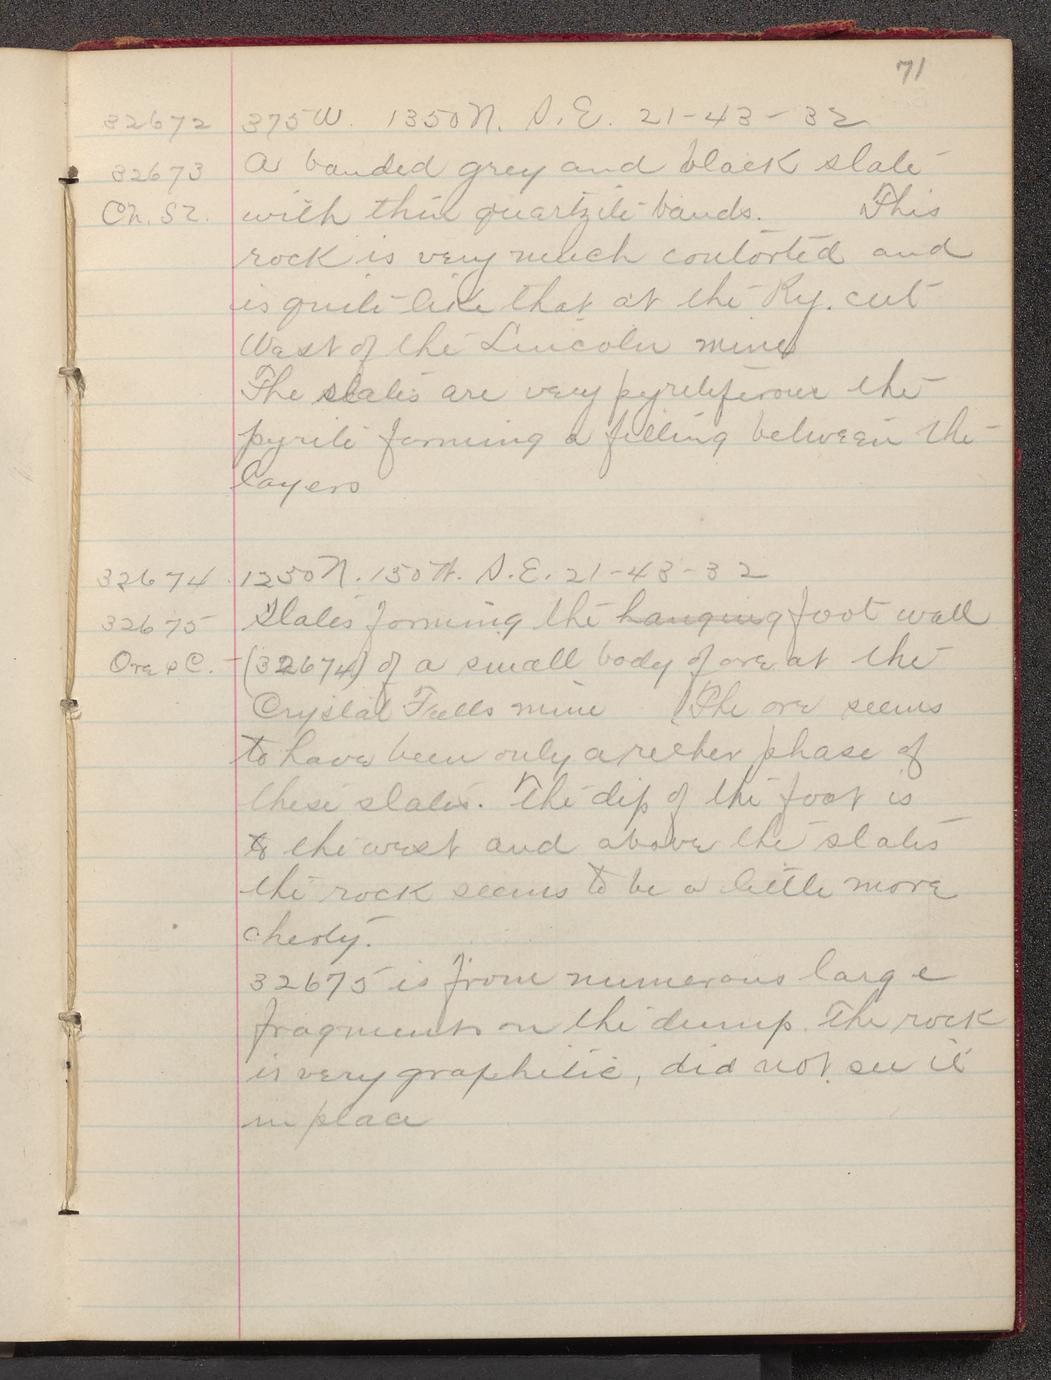 71
32672 375W. 1350N. S.E. 21-43-32
32673 A banded grey and black slate
Ch. Sl. with thin quartzite bands. This
rock is very much contorted and
is quite like that at the Ry. cut
West of the Lincoln mine
The slates are very pyritiferous the
pyrite forming a filling between the
layers
32674 1250N. 150W. S.E. 21-43-32
32675 Slates forming the hanging foot wall
Ore & C. (32674) of a small body of ore at the
Crystal Falls mine The ore seems
to have been only a richer phase of
these slates. The dip of the foot is
to the west and above the slates
the rock seems to be a little more
cherty.
32675 is from numerous large
fragments on the dump. The rock
is very graphitic, did not see it
in place